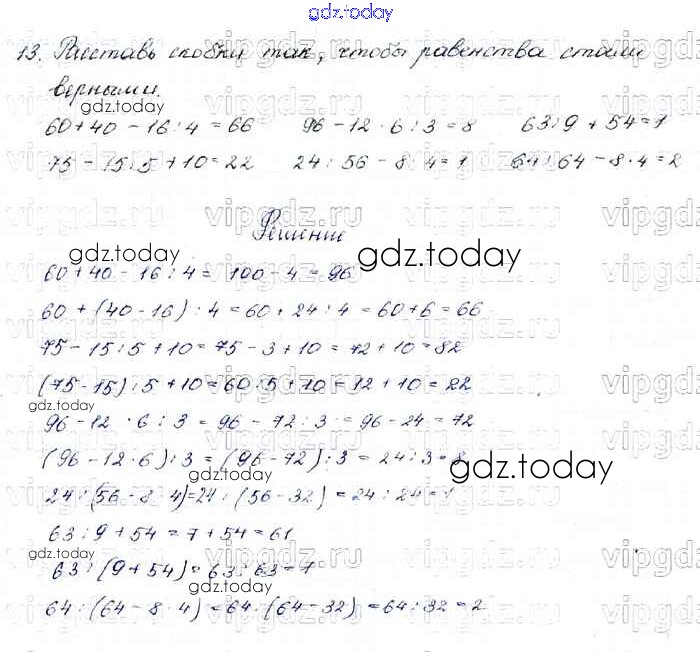 gdz.today
13. Расставь скобки так, чтобы равенства стали
верными.
gdz.today
60+40 - 16 : 4 = 66 96 - 12 · 6 : 3 = 8 63 : 9 + 54 = 1
75 - 15 : 5 + 10 = 22 24 : 56 - 8 · 4 = 1 64 : 64 - 8 · 4 = 2
vipgdz.ru
Решение
gdz.today gdz.today
60+40 - 16 : 4 = 100 - 4 = 96
60 + (40 - 16) : 4 = 60 + 24 : 4 = 60+6 = 66
75 - 15 : 5 + 10 = 75 - 3 + 10 = 72 + 10 = 82
(75-15) : 5 + 10 = 60 : 5 + 10 = 12 + 10 = 22
gdz.today
96 - 12 · 6 : 3 = 96 - 72 : 3 = 96 - 24 = 72
(96 - 12 · 6) : 3 = (96 - 72) : 3 = 24 : 3 = 8
gdz.today gdz.today
24 : (56 - 8 · 4) = 24 : (56 - 32) = 24 : 24 = 1
63 : 9 + 54 = 7 + 54 = 61
gdz.today gdz.today
63 : (9 + 54) = 63 : 63 = 1
64 : (64 - 8 · 4) = 64 : (64 - 32) = 64 : 32 = 2